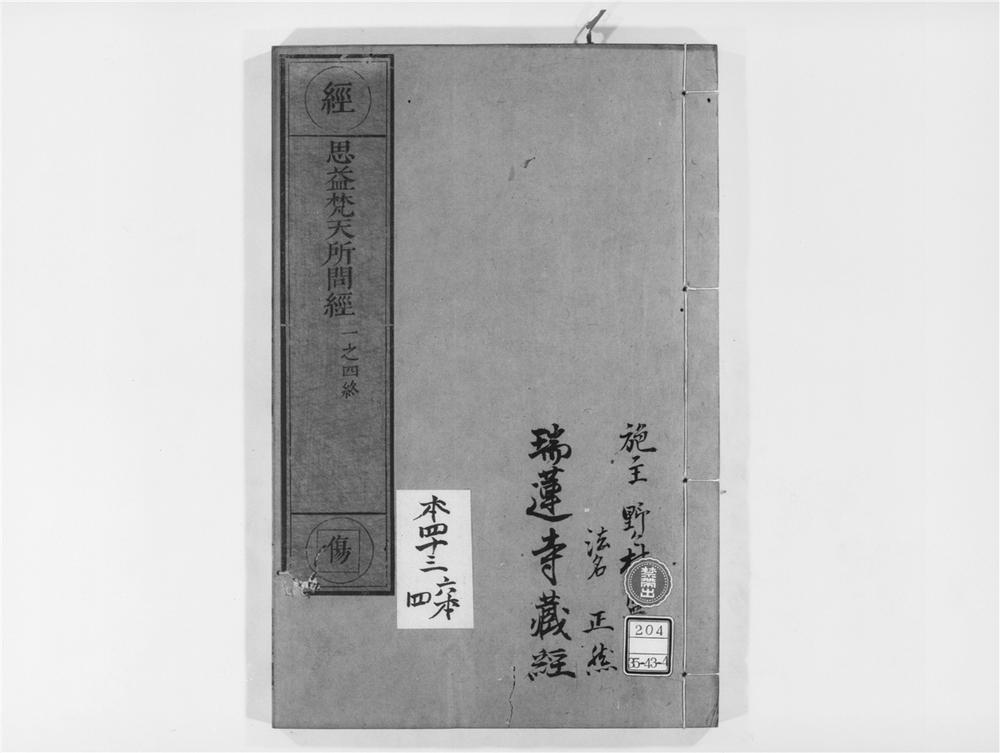 施主 野々村
法名 正然
瑞蓮寺藏經
禁帶出
204
35-43-4
本四十三
六本
四
經
思益梵天所問經 一之四終
傷